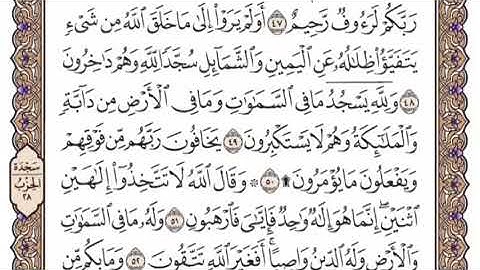 رَبَّكُمْ لَرَءُوفٌ رَّحِيمٌ ٤٧ أَوَلَمْ يَرَوْا۟ إِلَىٰ مَا خَلَقَ ٱللَّهُ مِن شَىْءٍ
يَتَفَيَّؤُا۟ ظِلَٰلُهُۥ عَنِ ٱلْيَمِينِ وَٱلشَّمَآئِلِ سُجَّدًا لِّلَّهِ وَهُمْ دَٰخِرُونَ
٤٨ وَلِلَّهِ يَسْجُدُ مَا فِى ٱلسَّمَٰوَٰتِ وَمَا فِى ٱلْأَرْضِ مِن دَآبَّةٍ
وَٱلْمَلَٰٓئِكَةُ وَهُمْ لَا يَسْتَكْبِرُونَ ٤٩ يَخَافُونَ رَبَّهُم مِّن فَوْقِهِمْ
وَيَفْعَلُونَ مَا يُؤْمَرُونَ ۩ ٥٠ ۞ وَقَالَ ٱللَّهُ لَا تَتَّخِذُوٓا۟ إِلَٰهَيْنِ
ٱثْنَيْنِ ۖ إِنَّمَا هُوَ إِلَٰهٌ وَٰحِدٌ فَإِيَّٰىَ فَٱرْهَبُونِ ٥١ وَلَهُۥ مَا فِى ٱلسَّمَٰوَٰتِ
وَٱلْأَرْضِ وَلَهُ ٱلدِّينُ وَاصِبًا ۚ أَفَغَيْرَ ٱللَّهِ تَتَّقُونَ ٥٢ وَمَا بِكُم مِّن
سَجدة
الحِزب
٢٨